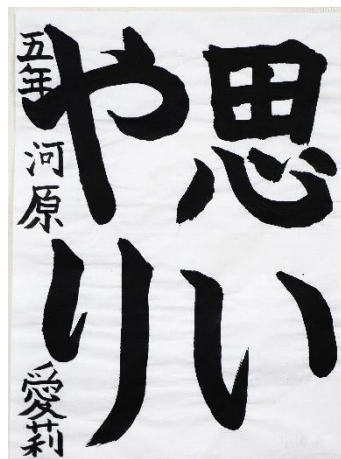 思い
やり
五年 河原 愛莉